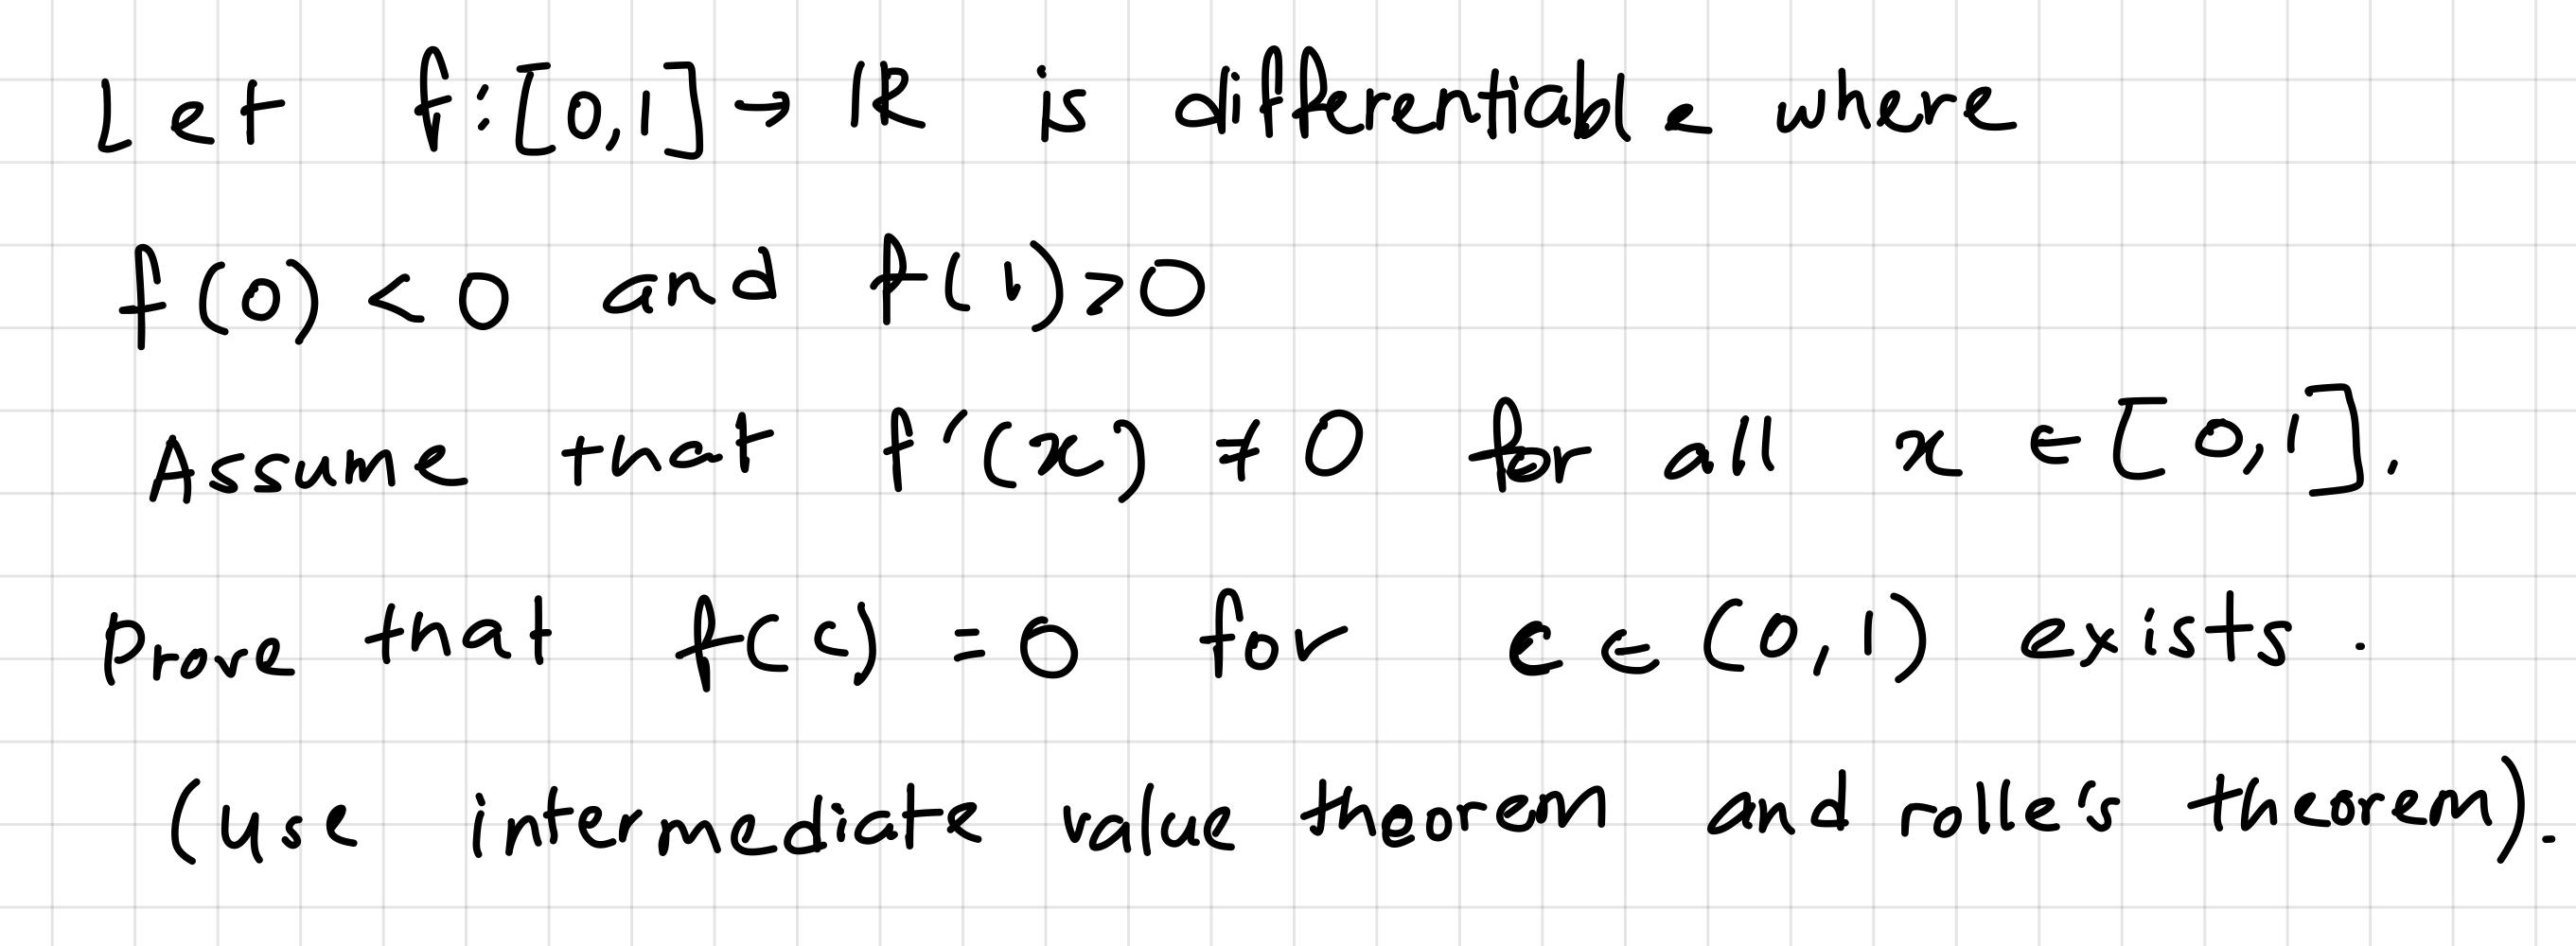 Let f:[0,1]→ℝ is differentiable where
f(0)<0 and f(1)>0
Assume that f'(x) ≠ 0 for all x ∈[0,1].
Prove that f(c) = 0 for c ∈ (0,1) exists.
(use intermediate value theorem and rolle's theorem).